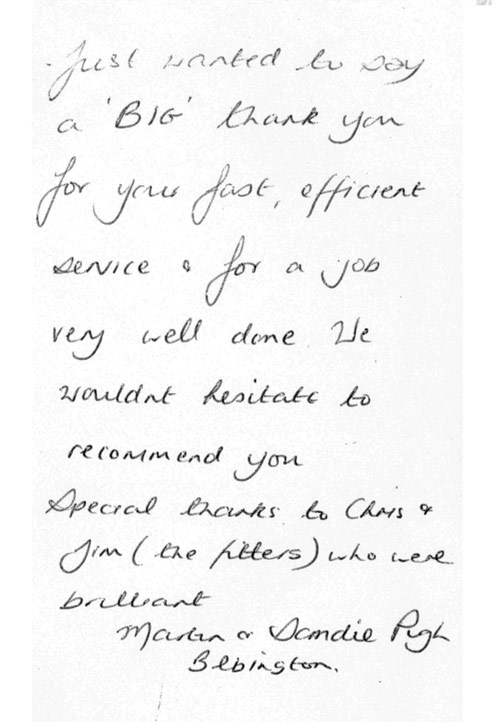 Just wanted to say
a 'BIG' thank you
for your fast, efficient
service & for a job
very well done. We
wouldnt hesitate to
recommend you
Special thanks to Chris &
Jim (the fitters) who were
brilliant
Martin & Sandie Pugh
Bebington.